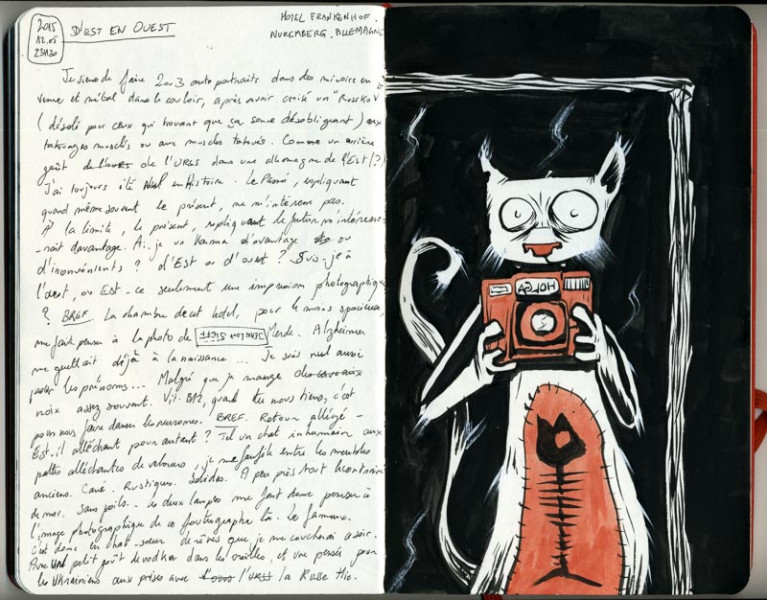 2015
12.05
23H30
D'EST EN OUEST
HOTEL FRANKENHOF.
NUREMBERG. ALLEMAGNE
Je viens de faire 2 ou 3 auto portraits dans des miroirs en
verre et métal dans le couloir, après avoir croisé un "Ruskov"
(désolé pour ceux qui trouvent que ça sonne désobligeant) aux
tatouages musclés ou aux muscles tatoués. Comme un arrière
goût de l'URSS dans une allemagne de l'Est (?)
J'ai toujours été nul en Histoire. Le Passé, expliquant
quand même souvent le présent, ne m'intéresse pas.
À la limite, le présent, expliquant le futur m'intéresse-
-rait davantage. Ai-je un Karma d'avantage ou
d'inconvénients ? d'Est ou d'ouest ? Suis-je à
l'ouest, ou Est-ce seulement une impression photographique
? BREF. La chambre de cet hotel, pour le moins spacieuse,
me fait penser à la photo de JEANLOUP SIEFF Merde. Alzheimer
me guettait déjà à la naissance... Je suis nul aussi
pour les prénoms... Malgré que je mange des
noix assez souvent. Vit. B12, quand tu nous tiens, c'est
pour nous faire danser les neurones. BREF. Retour allégé -
Est-il alléchant pour autant ? Tel un chat inhumain aux
pattes alléchantes de velours, je me faufile entre les meubles
anciens. Carré. Rustiques. Solides. A peu près tout le contraire
de moi. Sans poils... Les deux lampes me font donc penser à
l'image photographique de ce foutugraphe là. Le fameux.
C'est donc en chat-sœur de rêves que je me coucherai ce soir.
Avec un petit goût de vodka dans les oreilles, et une pensée pour
les Ukrainiens aux prises avec l'URSS la Russe Hie.
HOLGA